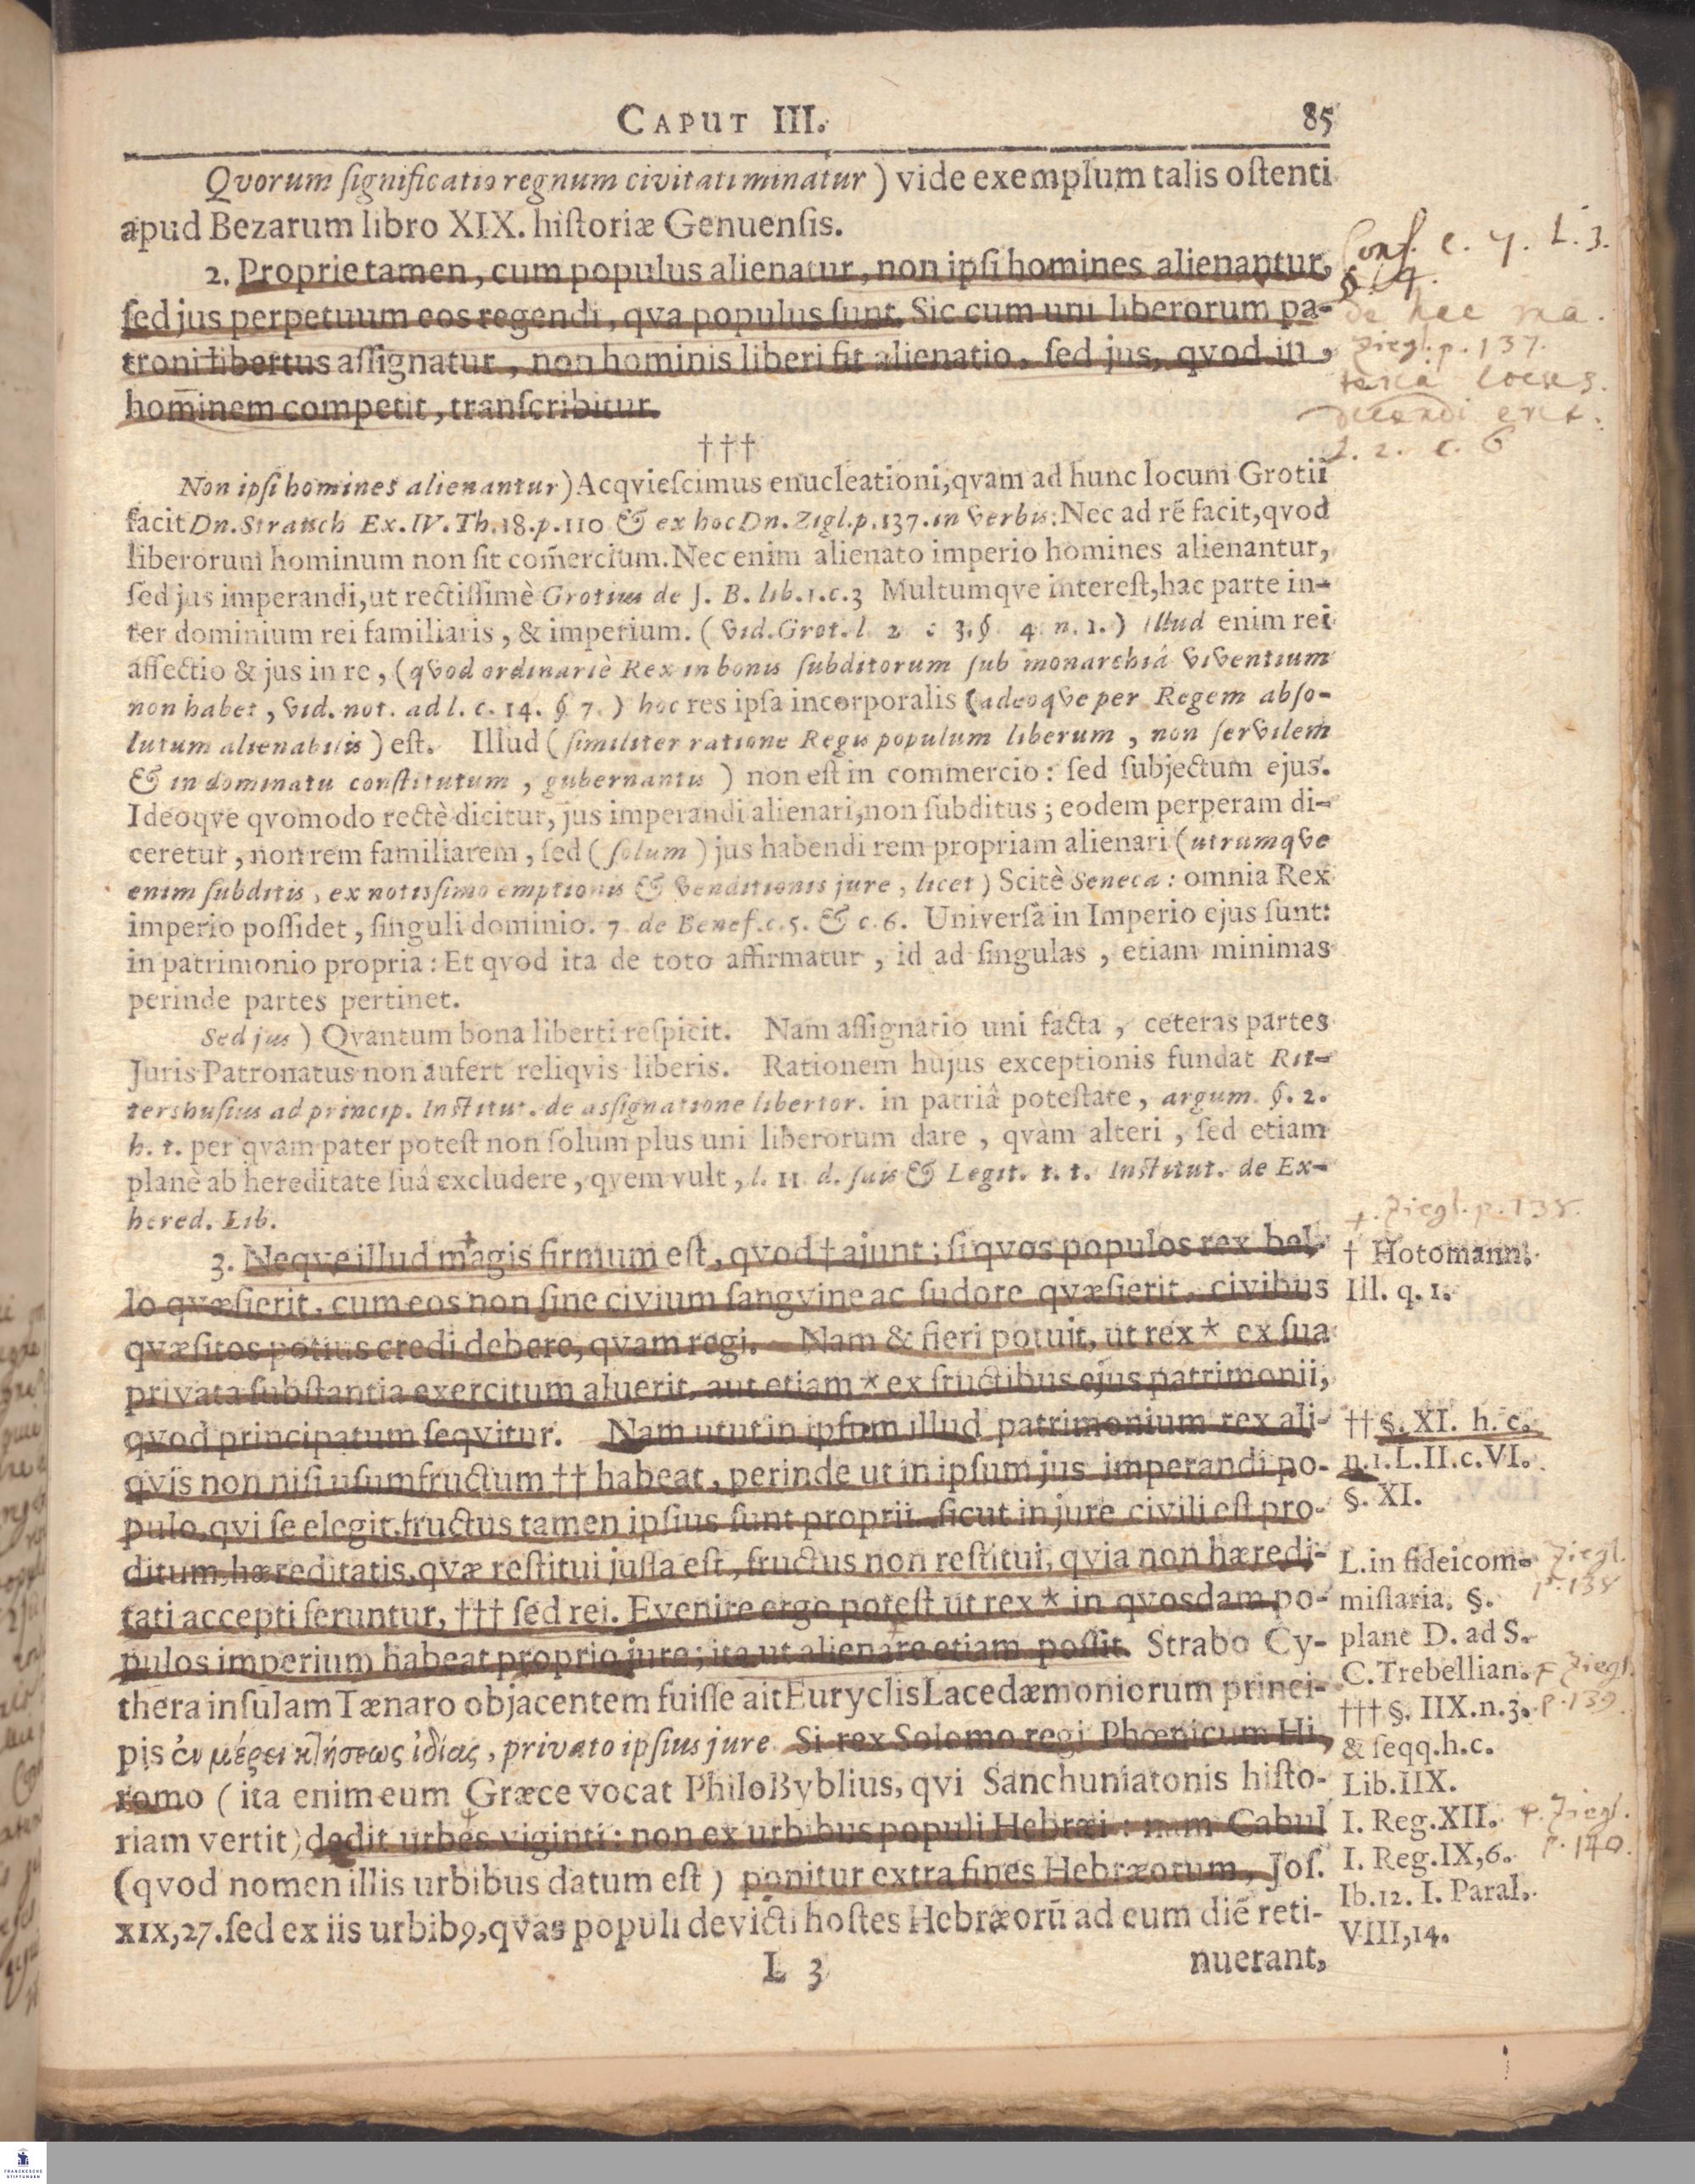 CAPUT III. 85
Qvorum ſignificatio regnum civitati minatur ) vide exemplum talis oſtenti
apud Bezarum libro XIX. hiſtoriæ Genuenſis.
2. Proprie tamen, cum populus alienatur, non ipſi homines alienantur,
ſed jus perpetuum eos regendi, qva populus ſunt. Sic cum uni liberorum pa-
troni libertus aſſignatur, non hominis liberi fit alienatio, ſed jus, qvod in
hom̄inem competit, tranſcribitur.
Conf. c. 4. L. 3.
§. 4.
de hac ma.
Ziegl. p. 137.
teria
L. 2. c. 6
†††
Non ipſi homines alienantur) Acqvieſcimus enucleationi, qvam ad hunc locum Grotii
facit Dn. Strauch Ex. IV. Th. 18. p. 110 & ex hoc Dn. Zigl. p. 137. in verbis: Nec ad rē facit, qvod
liberorum hominum non ſit com̄ercium. Nec enim alienato imperio homines alienantur,
ſed jus imperandi, ut rectiſſimè Grotius de J. B. lib. 1. c. 3 Multumqve intereſt, hac parte in-
ter dominium rei familiaris, & imperium. (vid. Grot. l. 2 c 3. §. 4. n. 1.) Illud enim rei
affectio & jus in re, (qvod ordinariè Rex in bonis ſubditorum ſub monarchiâ viventium
non habet, vid. not. ad l. c. 14. §. 7.) hoc res ipſa incorporalis (adeoqve per Regem abſo-
lutum alienabilis) eſt. Illud (ſimiliter ratione Regis populum liberum, non ſervilem
& in dominatu conſtitutum, gubernantis) non eſt in commercio: ſed ſubjectum ejus.
Ideoqve qvomodo rectè dicitur, jus imperandi alienari, non ſubditus; eodem perperam di-
ceretur, non rem familiarem, ſed (ſolum) jus habendi rem propriam alienari (utrumqve
enim ſubditis, ex notiſſimo emptionis & venditionis jure, licet) Scitè Seneca: omnia Rex
imperio poſſidet, ſinguli dominio. 7 de Benef. c. 5. & c. 6. Univerſa in Imperio ejus ſunt:
in patrimonio propria: Et qvod ita de toto affirmatur, id ad ſingulas, etiam minimas
perinde partes pertinet.
Sed jus) Qvantum bona liberti reſpicit. Nam aſſignatio uni facta, ceteras partes
Juris Patronatus non aufert reliqvis liberis. Rationem hujus exceptionis fundat Rit-
tershuſius ad princip. Inſtitut. de aſſignatione libertor. in patriâ poteſtate, argum. §. 2.
h. t. per qvam pater poteſt non ſolum plus uni liberorum dare, qvàm alteri, ſed etiam
planè ab hereditate ſuâ excludere, qvem vult, l. 11 d. ſuis & Legit. t. t. Inſtitut. de Ex-
hered. Lib.
3. Neqve illud magis firmum eſt, qvod † ajunt; ſi qvos populos rex bel-
lo qvæſierit, cum eos non ſine civium ſangvine ac ſudore qvæſierit, civibus
qvæſitos potius credi debere, qvam regi. Nam & fieri potuit, ut rex * ex ſua
privata ſubſtantia exercitum aluerit, aut etiam * ex fructibus ejus patrimonii,
qvod principatum ſeqvitur. Nam ut ut in ipſum illud patrimonium rex ali-
qvis non niſi uſumfructum †† habeat, perinde ut in ipſum jus imperandi po-
pulo, qvi ſe elegit, fructus tamen ipſius ſunt proprii. ſicut in jure civili eſt pro-
ditum, hæreditatis, qvæ reſtitui juſſa eſt, fructus non reſtitui, qvia non hæredi-
tati accepti feruntur, ††† ſed rei. Evenire ergo poteſt ut rex * in qvosdam po-
pulos imperium habeat proprio jure; ita ut alienare etiam poſſit. Strabo Cy-
thera inſulam Tænaro objacentem fuiſſe ait Euryclis Lacedæmoniorum princi-
pis ἐν μέρει κλήσεως ἰδίας, privato ipſius jure. Si rex Solomo regi Phœnicum Hi,
romo (ita enim eum Græce vocat Philo Byblius, qvi Sanchuniatonis hiſto-
riam vertit) dedit urbes viginti: non ex urbibus populi Hebræi: nam Cabul
(qvod nomen illis urbibus datum eſt) ponitur extra fines Hebræorum, Joſ.
XIX, 27. ſed ex iis urbibꝰ, qvas populi devicti hoſtes Hebræorū ad eum diē reti-
L 3 nuerant,
†. Ziegl. p. 138.
† Hotomann.
Ill. q. 1.
†† §. XI. h. c.
n. 1. L. II. c. VI.
§. XI.
L. in fideicom-
miſſaria. §.
plane D. ad S.
C. Trebellian.
††† §. IIX. n. 3.
& ſeqq. h. c.
Lib. IIX.
I. Reg. XII.
I. Reg. IX, 6.
Ib. 12. I. Paral.
VIII, 14.
Ziegl.
p. 138
Ziegl.
p. 139.
Ziegl.
p. 140.
FRANCKESCHE
STIFTUNGEN